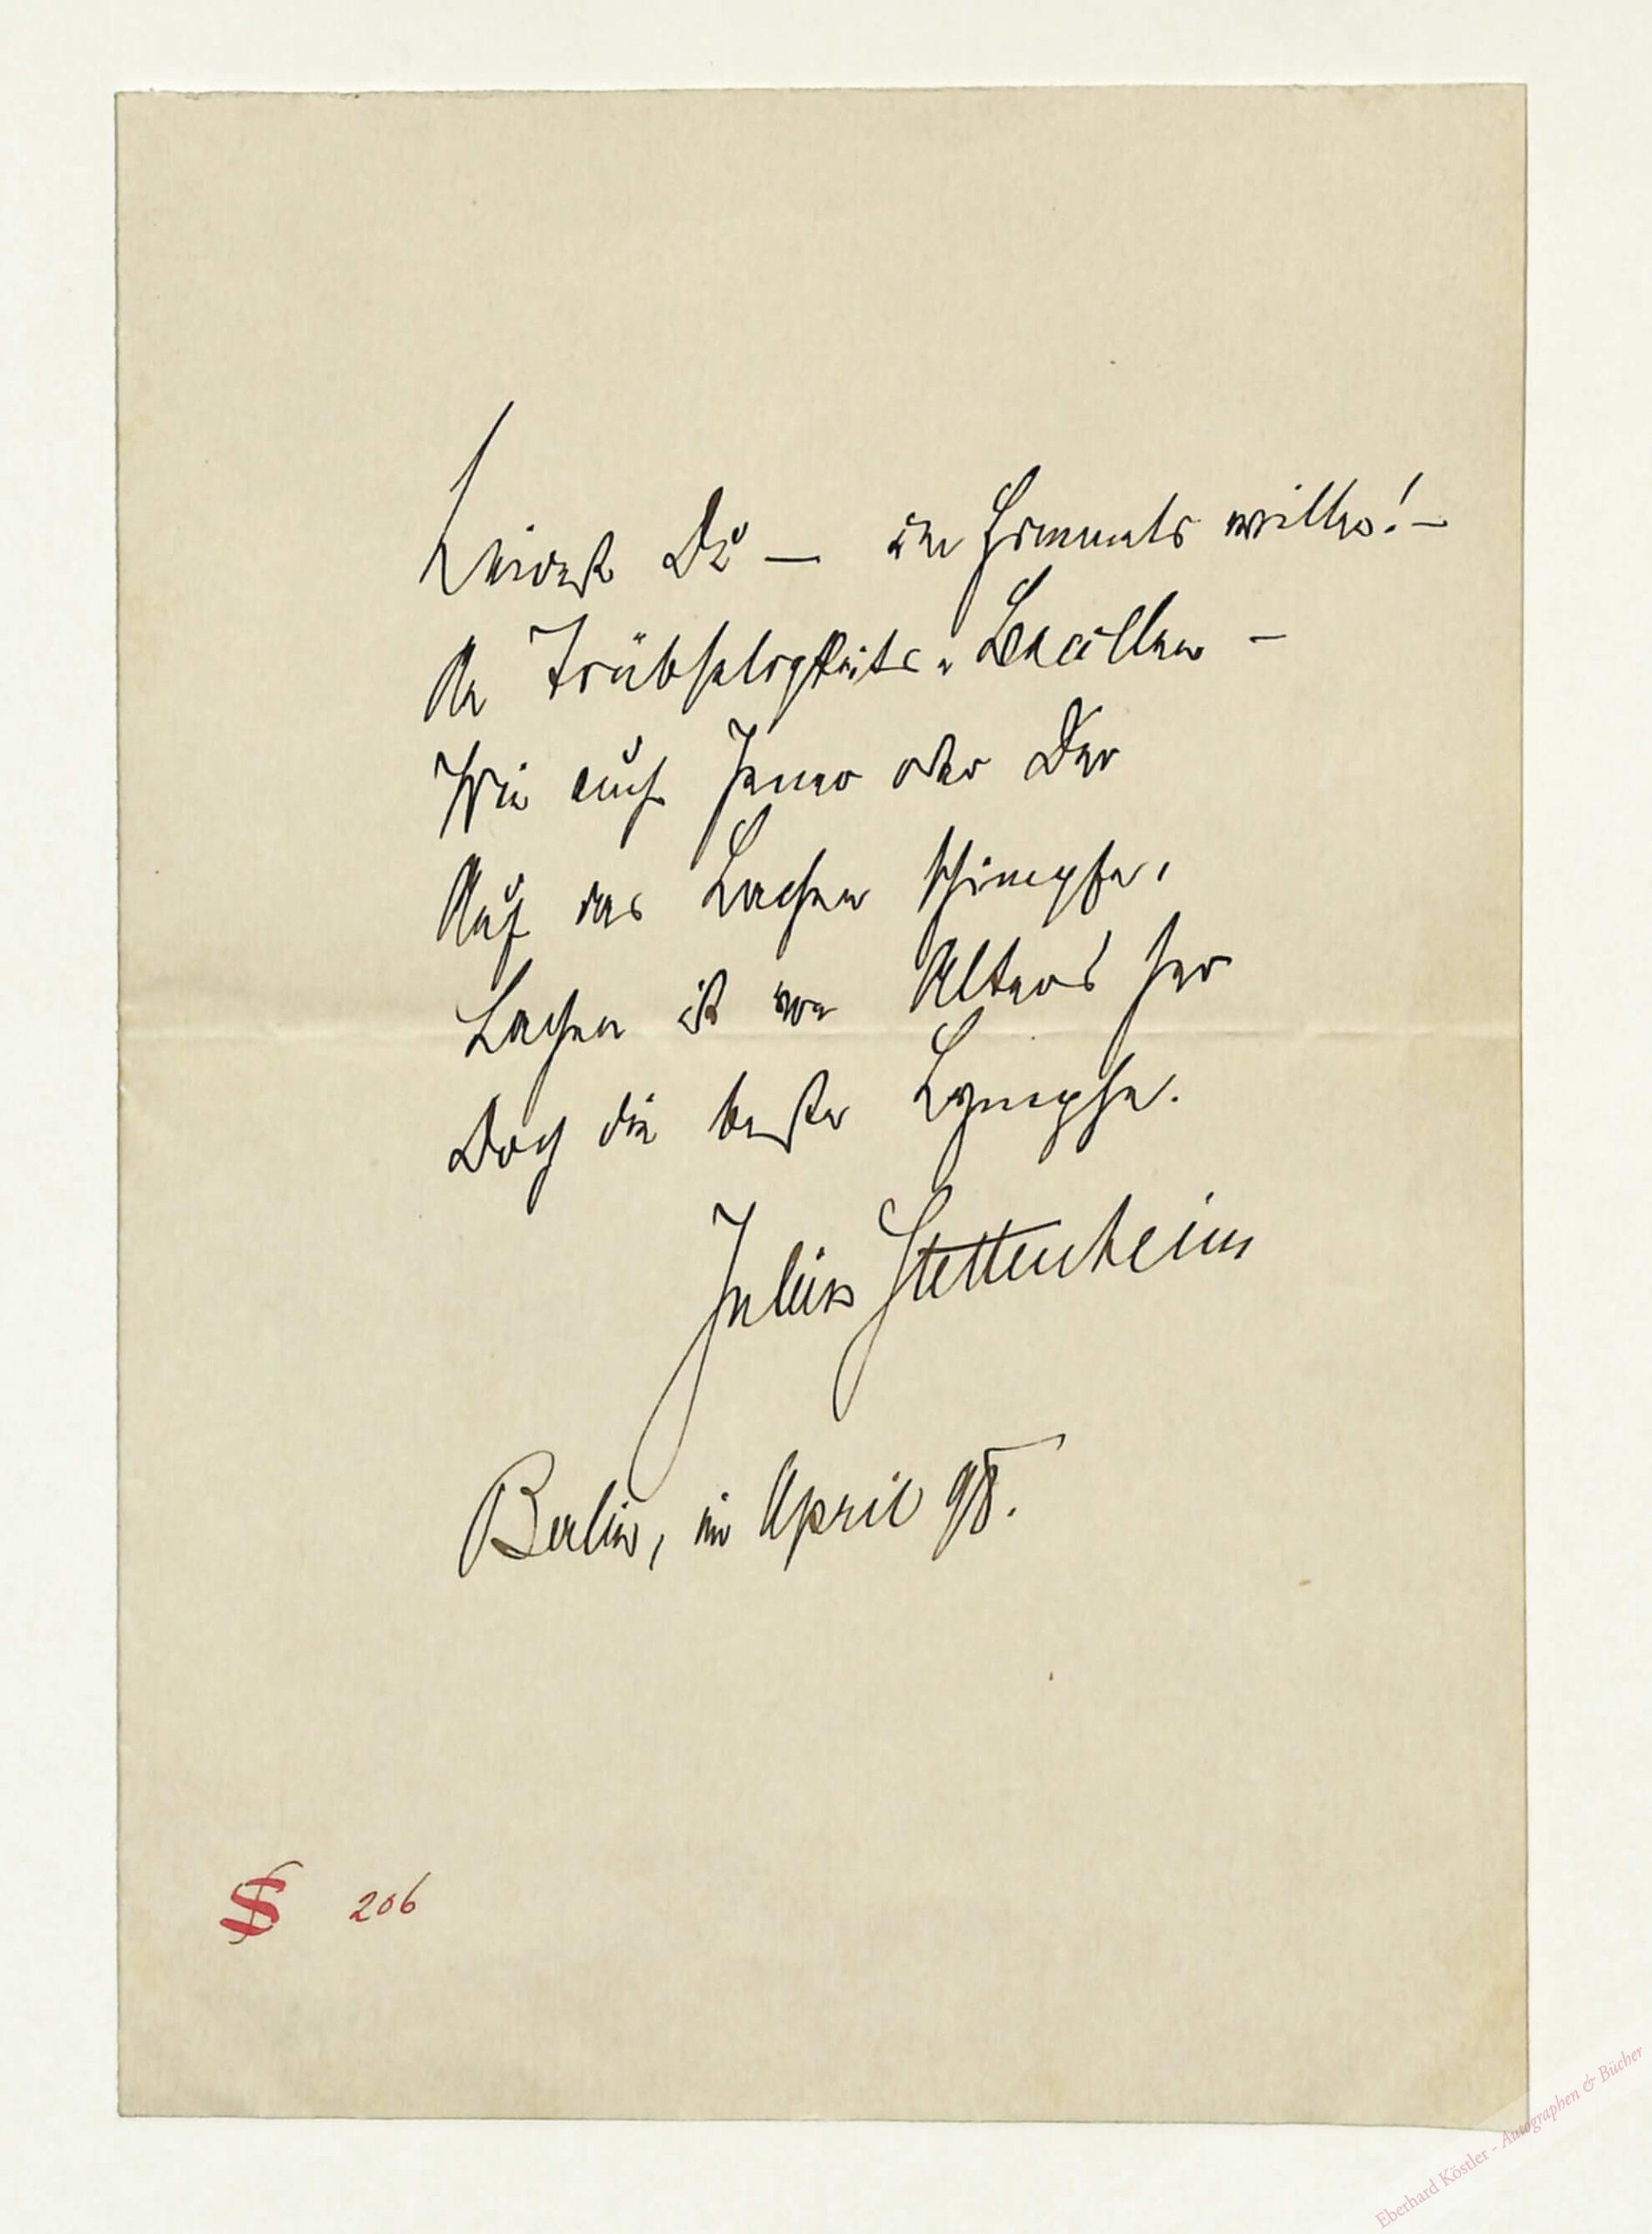 Leidest Du — um Himmels willen! —
An Trübseligkeits-Bacillen —
Wie auch Jener oder Der
Auf das Lachen schimpfe,
Lachen ist von Alters her
Doch die beste Lymphe.
Julius Stettenheim
Berlin, im April 98.
S 206
Eberhard Köstler - Autographen & Bücher